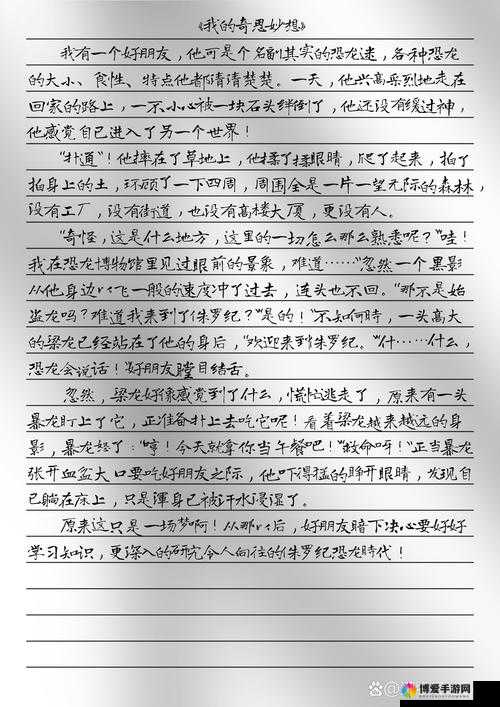 《我的奇思妙想》
我有一个好朋友，他可是个名副其实的恐龙迷，各种恐龙
的大小、食性、特点他都清清楚楚。一天，他兴高采烈地走在
回家的路上，一不小心被一块石头绊倒了，他还没有缓过神，
他感觉自己进入了另一个世界！
“扑通”！他摔在了草地上，他揉了揉眼睛，爬了起来，拍了
拍身上的土，环顾了一下四周，周围全是一片一望无际的森林，
没有工厂，没有街道，也没有高楼大厦，更没有人。
“奇怪，这是什么地方，这里的一切怎么那么熟悉呢？”哇！
我在恐龙博物馆里见过眼前的景象，难道……”忽然一个黑影
从他身边以飞一般的速度冲了过去，连头也不回。“那不是始
盗龙吗？难道我来到了侏罗纪？”是的！”不知何時，一头高大
的梁龙已经站在了他的身后，“欢迎来到侏罗纪。”什……什么，
恐龙会说话！”好朋友瞠目结舌。
忽然，梁龙好像感觉到了什么，慌忙逃走了，原来有一头
暴龙盯上了它，正准备扑上去吃它呢！看着梁龙越来越远的身
影，暴龙怒了：“哼！今天就拿你当午餐吧！”“救命呀！”正当暴龙
张开血盆大口要吃好朋友之际，他吓得猛的睁开眼睛，发现自
己躺在床上，只是渾身已被汗水浸湿了。
原来这只是一场梦啊！从那以后，好朋友暗下决心要好好
学习知识，更深入的研究令人向往的侏罗纪恐龙時代！
博爱手游网